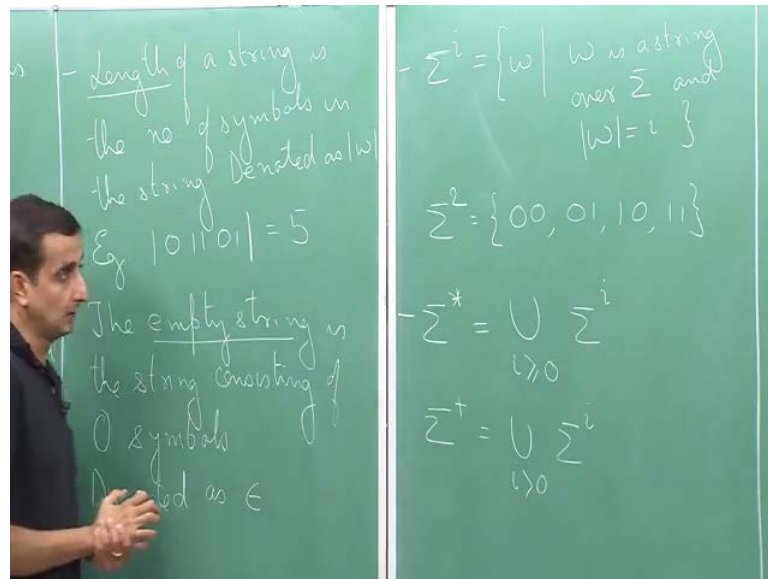 s
- Length of a string is
the no. of symbols in
the string Denoted as |w|
Eg |01101| = 5
The empty string is
the string consisting of
0 symbols
as ϵ
- Σ^i = {w | w is a string
over Σ and
|w| = i }
Σ^2 = {00, 01, 10, 11}
- Σ^* = ∪ Σ^i
i≥0
Σ^+ = ∪ Σ^i
i>0